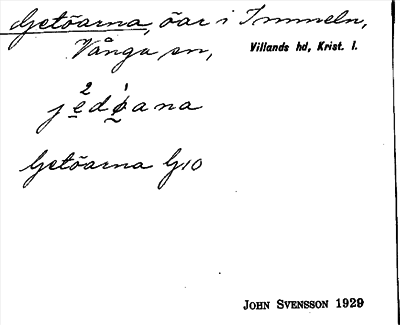 Getöarna, öar i Immeln,
Vånga sn, Villands hd, Krist. l.
jedøana
Getöarna G10
JOHN SVENSSON 1929